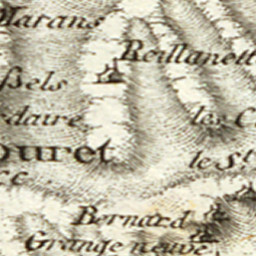 Marans
Reillanett
ßels
daire
les C
ouret
le St
cc
Bernard
Grange neuve